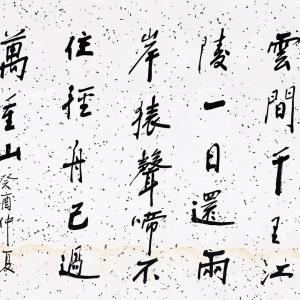 雲間千里江
陵一日還兩
岸猿聲啼不
住輕舟已過
萬重山
癸酉仲夏